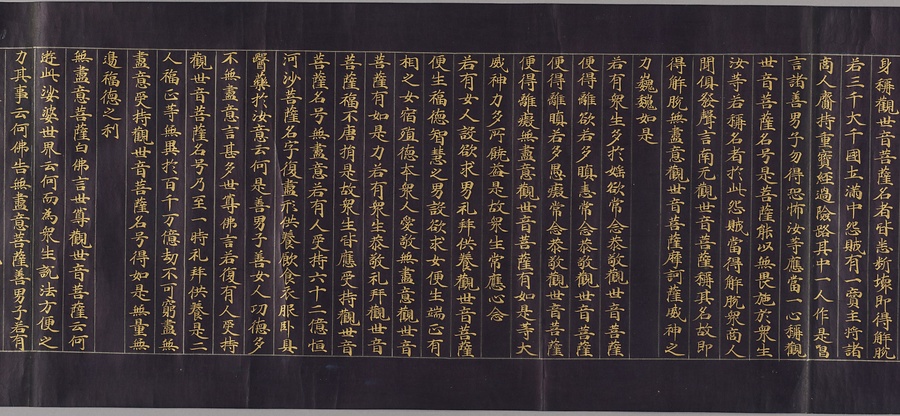 身稱觀世音菩薩名者皆悉斷壞即得解脫
若三千大千國土滿中怨賊有一商主將諸
商人齎持重寶經過險路其中一人作是唱
言諸善男子勿得恐怖汝等應當一心稱觀
世音菩薩名号是菩薩能以無畏施於衆生
汝等若稱名者於此怨賊當得解脫衆商人
聞俱發聲言南无觀世音菩薩稱其名故即
得解脫無盡意觀世音菩薩摩訶薩威神之
力巍巍如是
若有衆生多於婬欲常念恭敬觀世音菩薩
便得離欲若多瞋恚常念恭敬觀世音菩薩
便得離瞋若多愚癡常念恭敬觀世音菩薩
便得離癡無盡意觀世音菩薩有如是等大
威神力多所饒益是故衆生常應心念
若有女人設欲求男礼拜供養觀世音菩薩
便生福德智慧之男設欲求女便生端正有
相之女宿殖德本衆人愛敬無盡意觀世音
菩薩有如是力若有衆生恭敬礼拜觀世音
菩薩福不唐捐是故衆生皆應受持觀世音
菩薩名号無盡意若有人受持六十二億恒
河沙菩薩名字復盡形供養飲食衣服卧具
醫藥於汝意云何是善男子善女人功德多
不無盡意言甚多世尊佛言若復有人受持
觀世音菩薩名号乃至一時礼拜供養是二
人福正等無異於百千万億劫不可窮盡無
盡意受持觀世音菩薩名号得如是無量無
邊福德之利
無盡意菩薩白佛言世尊觀世音菩薩云何
遊此娑婆世界云何而為衆生說法方便之
力其事云何佛告無盡意菩薩善男子若有